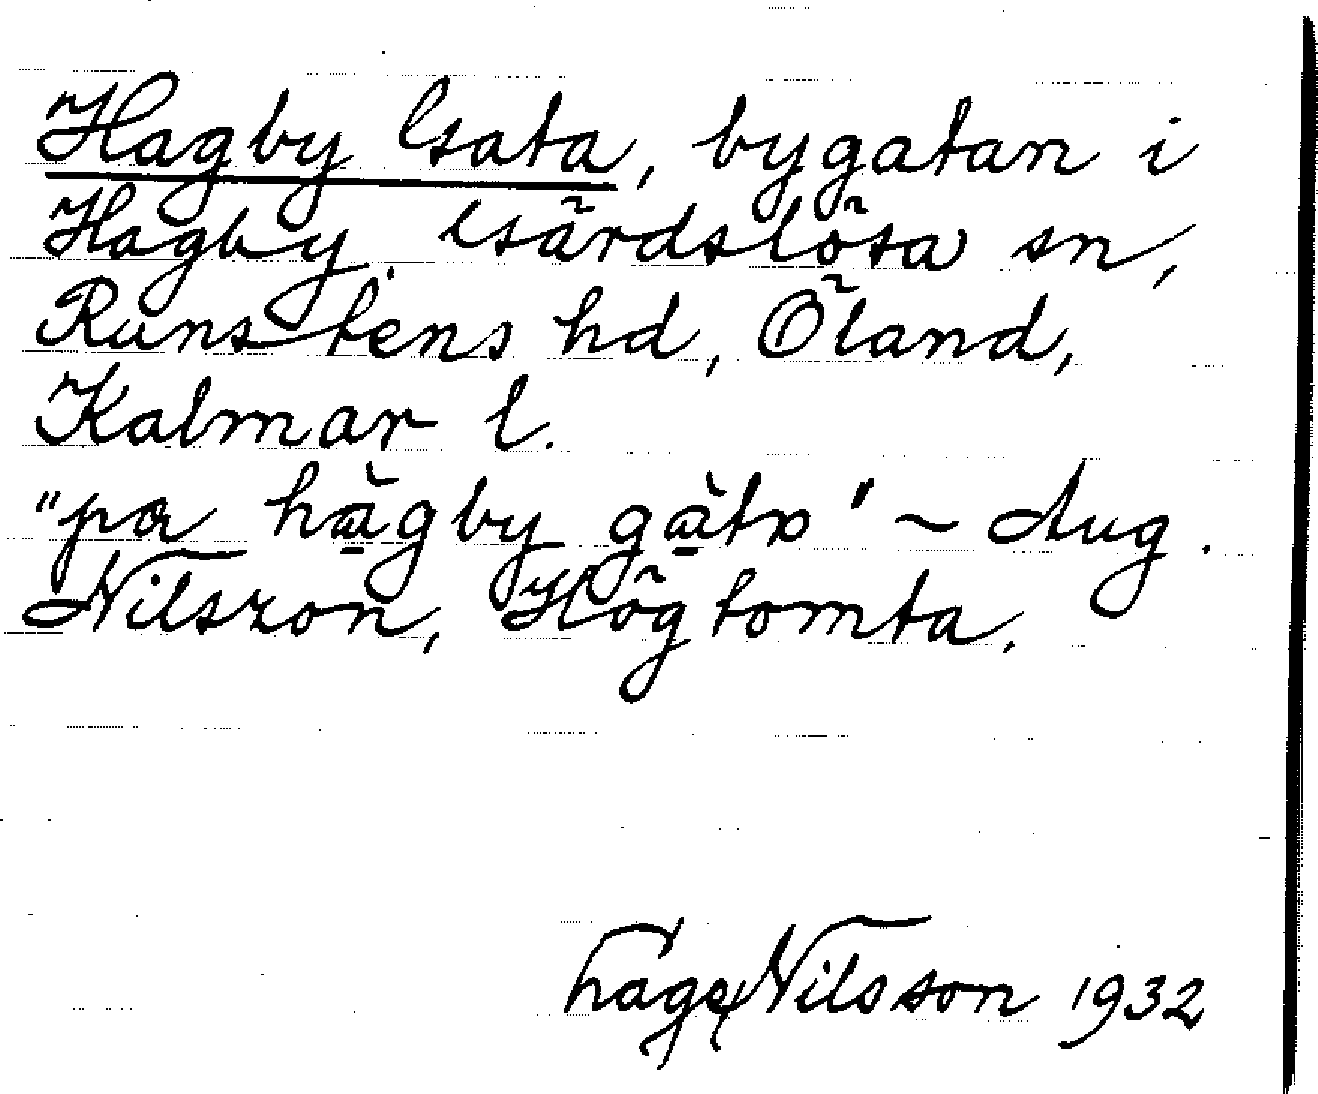 Hagby Gata, bygatan i
Hagby, Gärdslösa sn,
Runstens hd, Öland,
Kalmar l.
"pɑ hàgby gàtə" ~ Aug.
Nilsson, Högtomta.
Hage Nilsson 1932